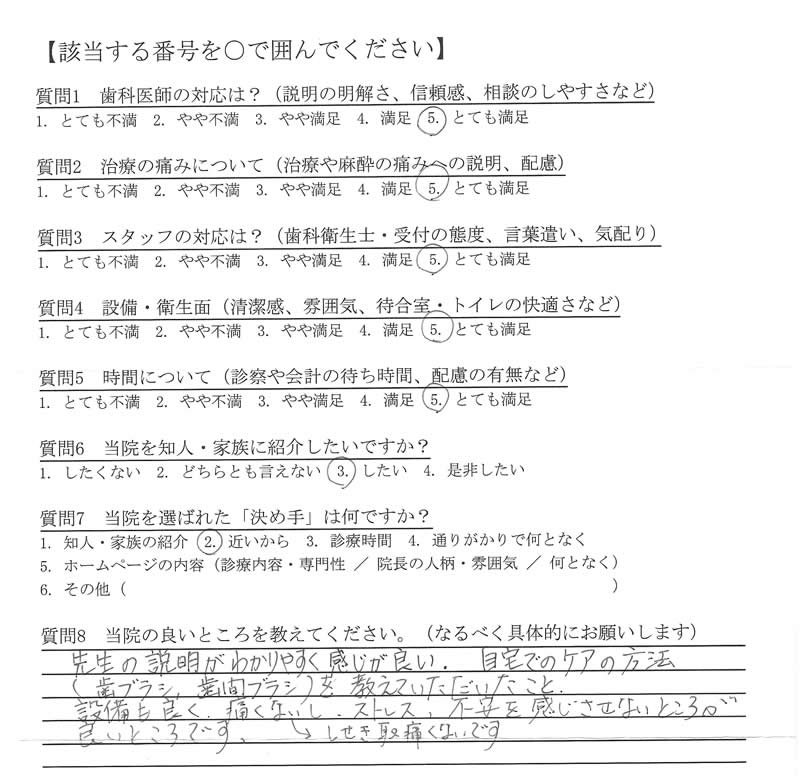 【該当する番号を○で囲んでください】
質問1 歯科医師の対応は?(説明の明解さ、信頼感、相談のしやすさなど)
1. とても不満 2. やや不満 3. やや満足 4. 満足 5. とても満足
質問2 治療の痛みについて(治療や麻酔の痛みへの説明、配慮)
1. とても不満 2. やや不満 3. やや満足 4. 満足 5. とても満足
質問3 スタッフの対応は?(歯科衛生士・受付の態度、言葉遣い、気配り)
1. とても不満 2. やや不満 3. やや満足 4. 満足 5. とても満足
質問4 設備・衛生面(清潔感、雰囲気、待合室・トイレの快適さなど)
1. とても不満 2. やや不満 3. やや満足 4. 満足 5. とても満足
質問5 時間について(診察や会計の待ち時間、配慮の有無など)
1. とても不満 2. やや不満 3. やや満足 4. 満足 5. とても満足
質問6 当院を知人・家族に紹介したいですか?
1. したくない 2. どちらとも言えない 3. したい 4. 是非したい
質問7 当院を選ばれた「決め手」は何ですか?
1. 知人・家族の紹介 2. 近いから 3. 診療時間 4. 通りがかりで何となく
5. ホームページの内容(診療内容・専門性 / 院長の人柄・雰囲気 / 何となく)
6. その他( )
質問8 当院の良いところを教えてください。(なるべく具体的にお願いします)
先生の説明がわかりやすく感じが良い. 自宅でのケアの方法
(歯ブラシ, 歯間ブラシ)を教えていただいたこと.
設備も良く、痛くないし、ストレス、不安を感じさせないところが
良いところです. ↳しせき取痛くないです